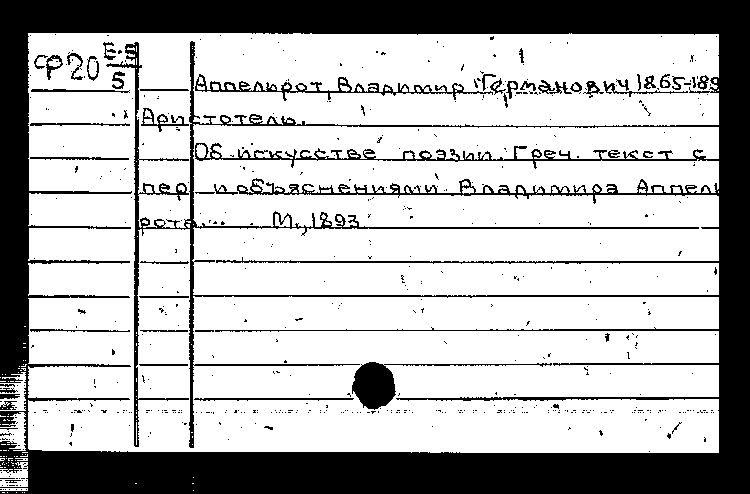 ср20 Е-5
5
Аппельрот, Владимир Германович, 1865-189
Аристотель.
Об искусстве поэзии. Греч. текст с
пер и объяснениями Владимира Аппель
рота... М., 1893